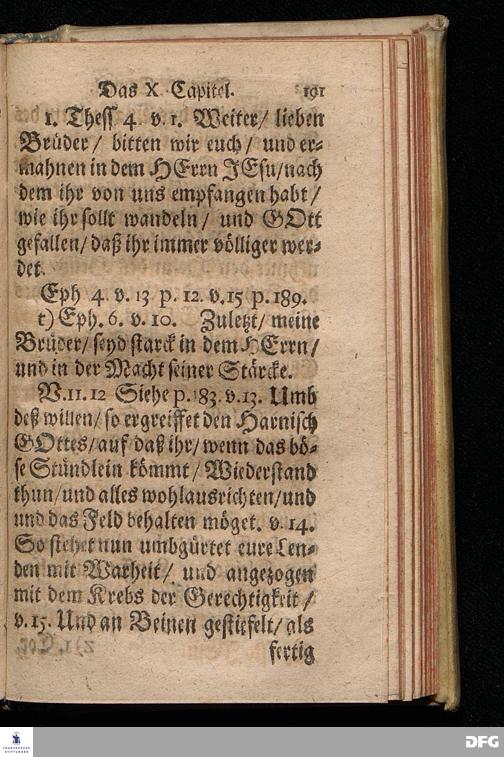 Das X. Capitel. 191
1. Thess 4. v. 1. Weiter/ lieben
Brüder/ bitten wir euch/ und er-
mahnen in dem HErrn JEsu/nach
dem ihr von uns empfangen habt/
wie ihr sollt wandeln/ und GOtt
gefallen/ daß ihr immer völliger wer-
det.
Eph 4. v. 13 p. 12. v. 15 p. 189.
t) Eph. 6. v. 10. Zuletzt/ meine
Brüder/ seyd starck in dem HErrn/
und in der Macht seiner Stärcke.
V. 11. 12 Siehe p. 183. v. 13. Umb
deß willen/ so ergreiffet den Harnisch
GOttes/ auf daß ihr/ wenn das bö-
se Stündlein kömmt/ Wiederstand
thun/und alles wohlausrichten/und
und das Feld behalten möget. v. 14.
So stehet nun umbgürtet eure Len-
den mit Warheit/ und angezogen
mit dem Krebs der Gerechtigkeit/
v. 15. Und an Beinen gestiefelt/ als
fertig
FRANCKESCHE
STIFTUNGEN
DFG